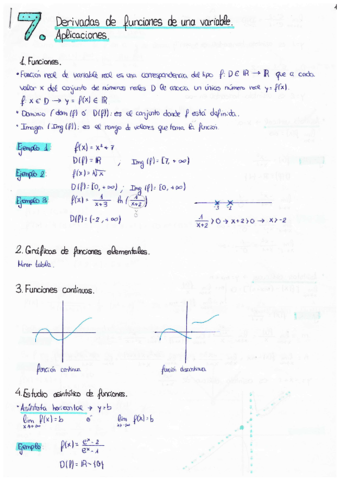 7. Derivadas de funciones de una variable.
Aplicaciones.
1. Funciones.
· Función real de variable real es una correspondencia del tipo f: D∈ℝ → ℝ que a cada
valor x del conjunto de números reales D le asocia un único número real y=f(x).
f: x∈D → y=f(x)∈ℝ
· Dominio (dom(f) ó D(f)). es el conjunto donde f está definida.
· Imagen (Img(f)). es el rango de valores que toma la función
Ejemplo 1 f(x) = x²+7
D(f)=ℝ , Img(f)=[7,+∞)
Ejemplo 2 f(x)=√x
D(f)=[0,+∞) , Img(f)=[0,+∞)
Ejemplo 13 f(x)= 1/x+3 ln(1/x+2) -3 -2
D(f)=(-2,+∞) 1/x+2 >0 → x+2>0 → x>-2
2. Gráficas de funciones elementales.
Mirar tabla.
3. Funciones continuas.
función continua función discontinua
4. Estudio asintótico de funciones.
· Asíntota horizontal → y=b
lim x→+∞ f(x)=b ó lim x→-∞ f(x)=b
Ejemplo f(x)= eˣ-2/eˣ-1
D(f)=ℝ-{0}